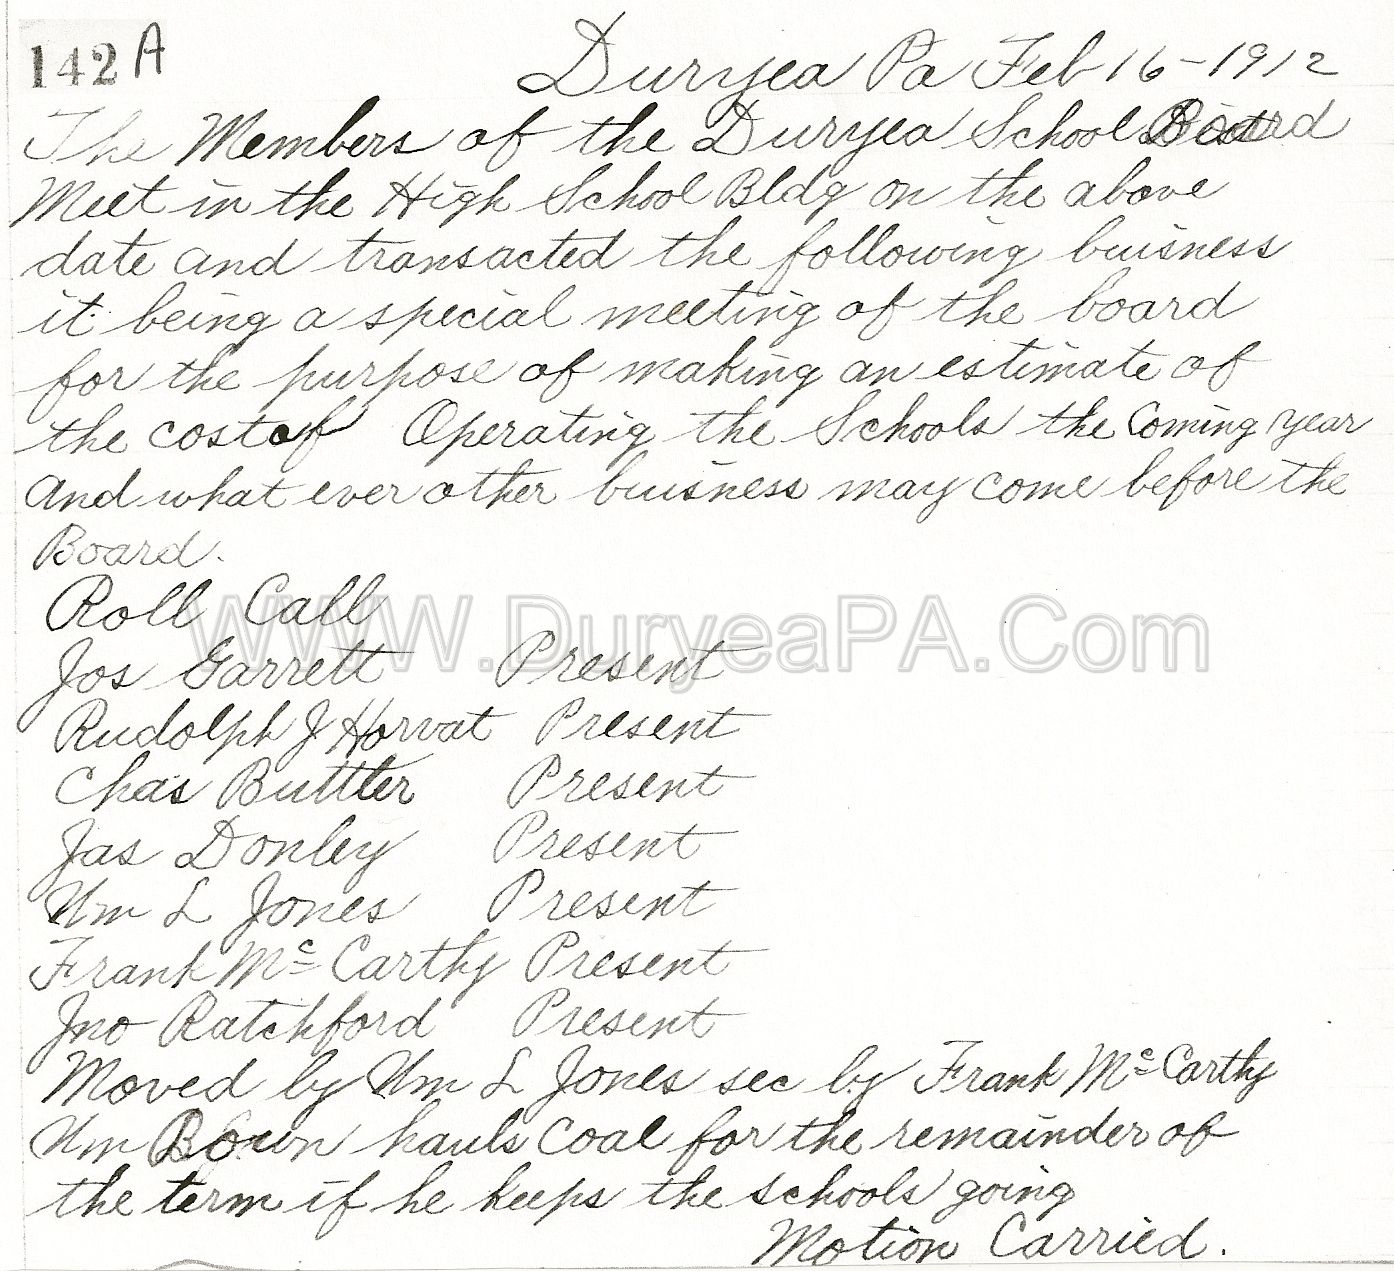 142 A
Duryea Pa Feb 16-1912
The Members of the Duryea School Board
Meet in the High School Bldg on the above
date and transacted the following buisness
it being a special meeting of the board
for the purpose of making an estimate of
the cost of Operating the Schools the Coming year
and what ever other buisness may come before the
Board.
Roll Call
WWW.DuryeaPA.Com
Jos Garrett Present
Rudolph J Horvat Present
Chas Buttler Present
Jas Donley Present
Wm L Jones Present
Frank Mc Carthy Present
Jno Ratchford Present
Moved by Wm L Jones sec by Frank Mc Carthy
Wm hauls Coal for the remainder of
the term if he keeps the schools going
Motion Carried.